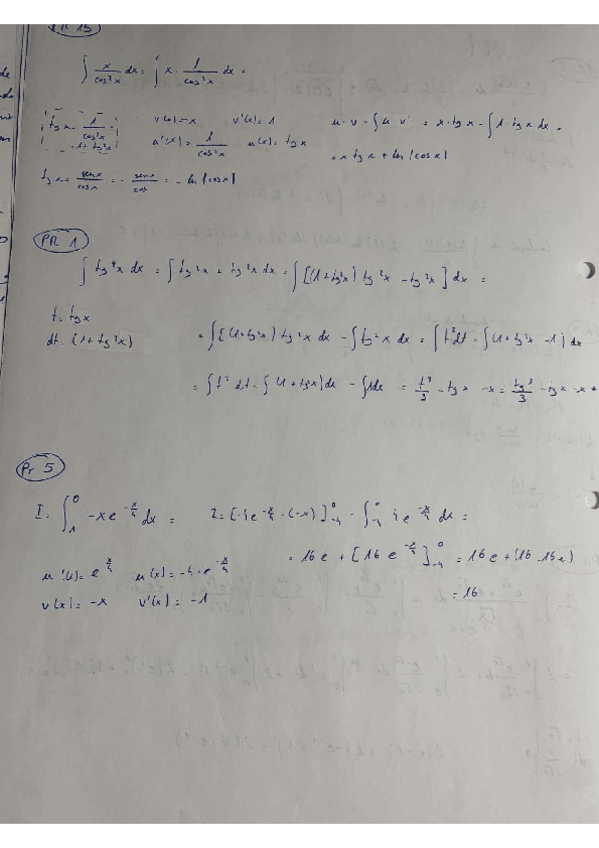 PR 15
∫ x/cos²x dx = ∫ x · 1/cos²x dx =
tg x = 1/cos²x = 1 + tg²x   v(x) = x   v'(x) = 1   u · v - ∫ u · v' = x · tg x - ∫ 1 · tg x dx =
u'(x) = 1/cos²x   u(x) = tg x   = x tg x + ln |cos x|
tg x = sen x/cos x = - sen x/cos = - ln |cos x|
PR 1
∫ tg⁴x dx = ∫ tg²x · tg²x dx = ∫ [(1+tg²x) tg²x - tg²x] dx =
t = tg x
dt = (1 + tg²x)   = ∫ [(1+tg²x) tg²x dx - ∫ tg²x dx = ∫ t² dt - ∫ (1+tg²x - 1) dx
= ∫ t² dt - ∫ (1 + tg²x) dx - ∫ 1 dx = t³/3 - tg x - x = tg³/3 - tg x - x +
Pr 5
I = ∫₁⁰ -x e^(-x/4) dx =   I = [-4e^(-x/4) · (-x)]₋₄⁰ - ∫₋₄⁰ 4 e^(-x/4) dx =
u'(x) = e^(x/4)   u(x) = -4 · e^(-x/4)   = 16e + [16 e^(-x/4)]₋₄⁰ = 16e + (16 - 16e)
v(x) = -x   v'(x) = -1   = 16